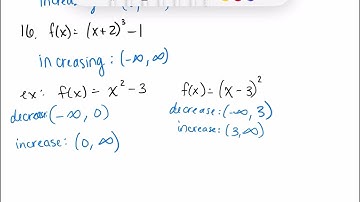 increasing
16. f(x) = (x+2)³ - 1
increasing : (-∞, ∞)
ex: f(x) = x² - 3
decrease (-∞, 0)
increase: (0, ∞)
f(x) = (x - 3)²
decrease: (-∞, 3)
increase: (3, ∞)